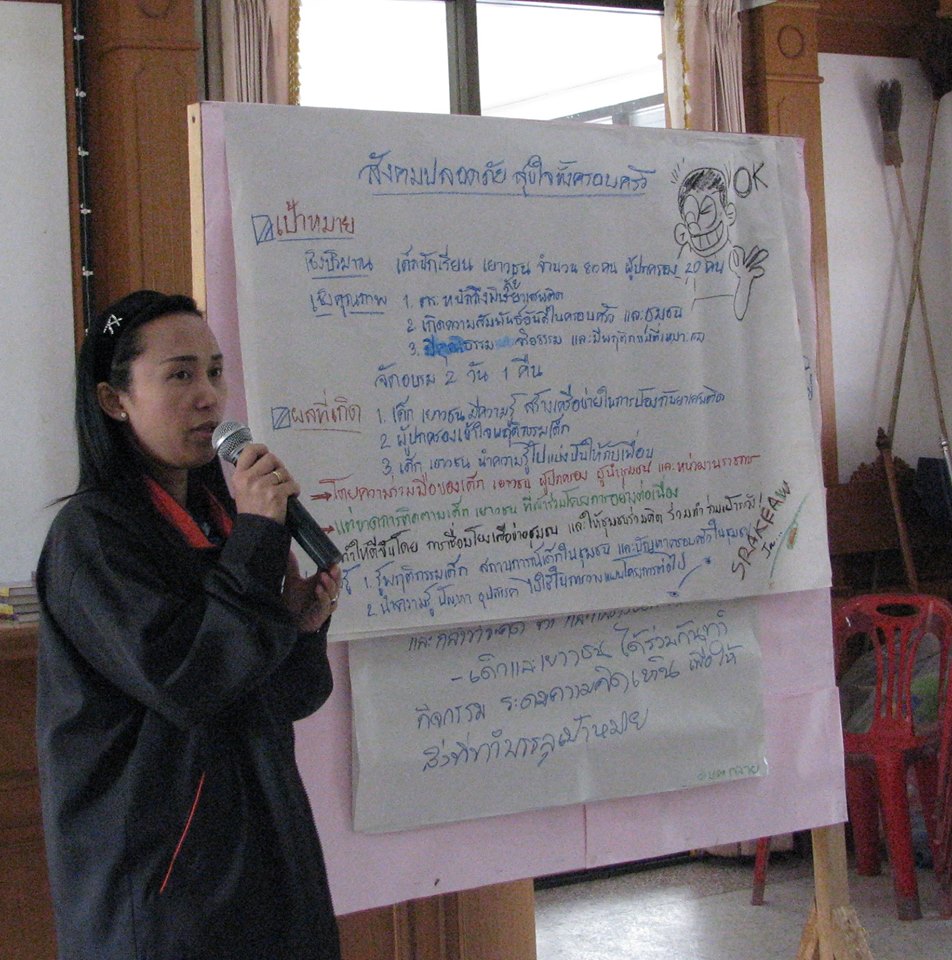 สังคมปลอดภัย สุขใจทั้งครอบครัว
OK
เป้าหมาย
เชิงปริมาณ เด็กนักเรียน เยาวชน จำนวน ๕๐ คน ผู้ปกครอง 20 คน
เชิงคุณภาพ 1. ตร.หนักถึงพิษภัยยาเสพติด
2. เกิดความสัมพันธ์อันดีในครอบครัว และชุมชน
3. มีคุณธรรม จริยธรรม และมีพฤติกรรมที่เหมาะสม
จัดอบรม 2 วัน 1 คืน
ผลที่เกิด 1. เด็ก เยาวชน มีความรู้ สร้างเครือข่ายในการป้องกันยาเสพติด
2. ผู้ปกครองเข้าใจพฤติกรรมเด็ก
3. เด็ก เยาวชน นำความรู้ไปแบ่งปันให้กับเพื่อน
โดยความร่วมมือของเด็ก เยาวชน ผู้ปกครอง ผู้นำชุมชน และหน่วยงานราชการ
แต่ขาดการติดตามเด็ก เยาวชน ที่เข้าร่วมโครงการอย่างต่อเนื่อง
ทำให้ดีขึ้นโดย การเชื่อมโยงเครือข่ายชุมชน และให้ชุมชนร่วมคิด ร่วมทำ ร่วมเฝ้าระวัง
รู้ 1. รู้พฤติกรรมเด็ก สถานการณ์เด็กในชุมชน และปัญหาครอบครัวในชุมชน
2. นำความรู้ ปัญหา อุปสรรค ไปใช้ในการวางแผนโครงการต่อไป
SRAKEAW
- เด็กและเยาวชน ได้ร่วมกันทำ
กิจกรรม ระดมความคิดเห็น เพื่อให้
สิ่งที่ทำบรรลุเป้าหมาย